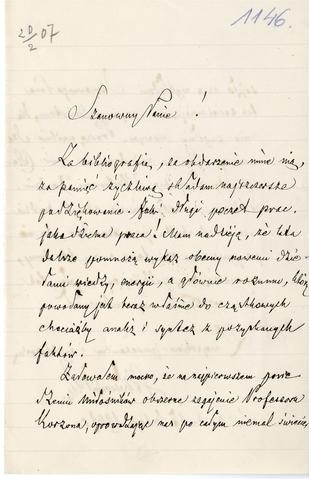 20/2 07
1146.
Szanowny Panie!
Za bibliografię, za obdarzenie mnie nią,
za pamięć życzliwą składam najszczersze
podziękowanie. Jaki długi poczet prac.
jaka dzielna praca! Mam nadzieję, że lata
dalsze pomnożą wykaz obecny nowemi dzie-
łami wiedzy, energii, a głównie rozumu, który
powołany jest teraz właśnie do cząstkowych
chociażby analiz i syntez z pozyskanych
faktów.
Żałowałem mocno, że na najpierwszem posie-
dzeniu Miłośników obszerne zagajenie Profesora
Korzona, oprowadzając nas po całym niemal świecie,